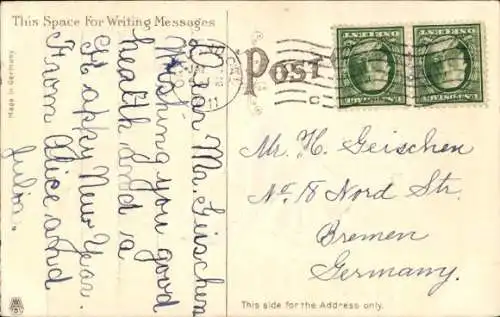 This Space For Writing Messages
Dear Mr. Geischen
Wishing you good
health and a
Happy New Year.
From Alice and
Julia.
Made in Germany
POST
11
U.S. POSTAGE
ONE CENT
U.S. POSTAGE
ONE CENT
Mr. H. Geischen
No. 18 Nord Str.
Bremen
Germany.
This side for the Address only.